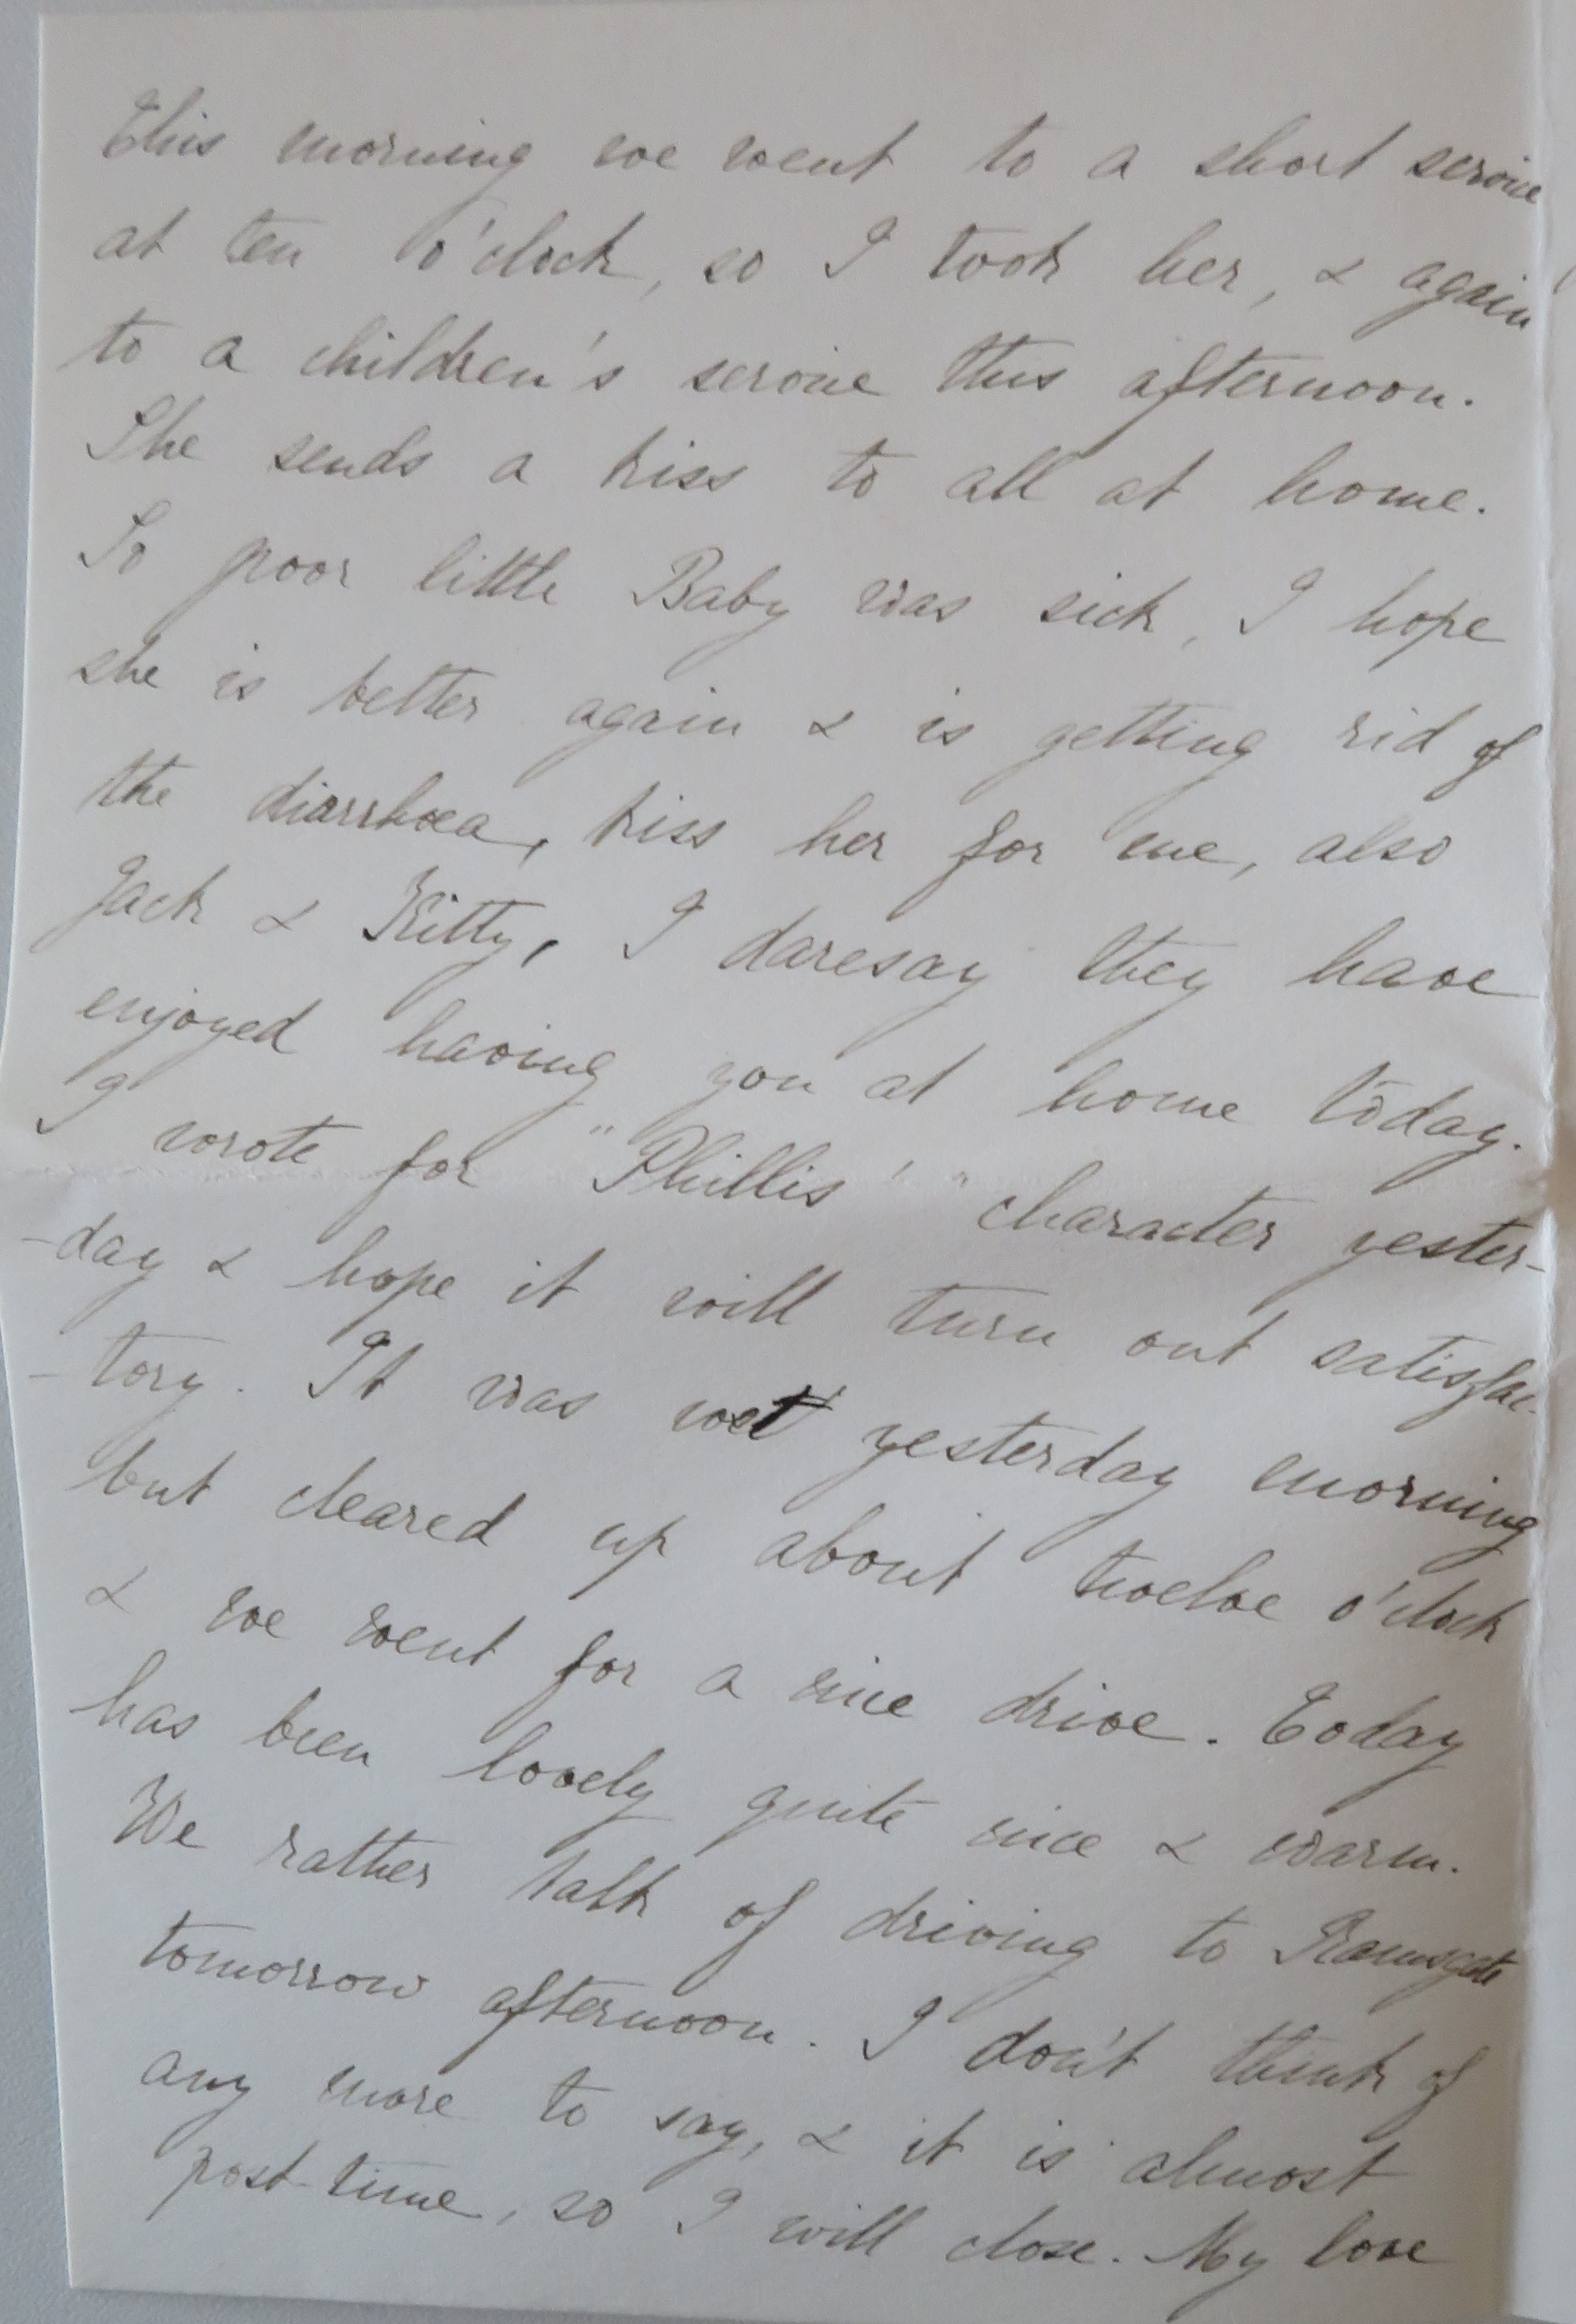 This morning we went to a short service
at ten o'clock, so I took her, & again
to a children's service this afternoon.
She sends a kiss to all at home.
So poor little Baby was sick, I hope
she is better again & is getting rid of
the diarrhoea, kiss her for me, also
Jack & Kitty, I daresay they have
enjoyed having you at home today.
I wrote for "Phillis' " character yester-
-day & hope it will turn out satisfac-
-tory. It was wet yesterday morning
but cleared up about twelve o'clock
& we went for a nice drive. Today
has been lovely quite nice & warm.
We rather talk of driving to Ramsgate
tomorrow afternoon. I don't think of
any more to say, & it is almost
post-time, so I will close. My love